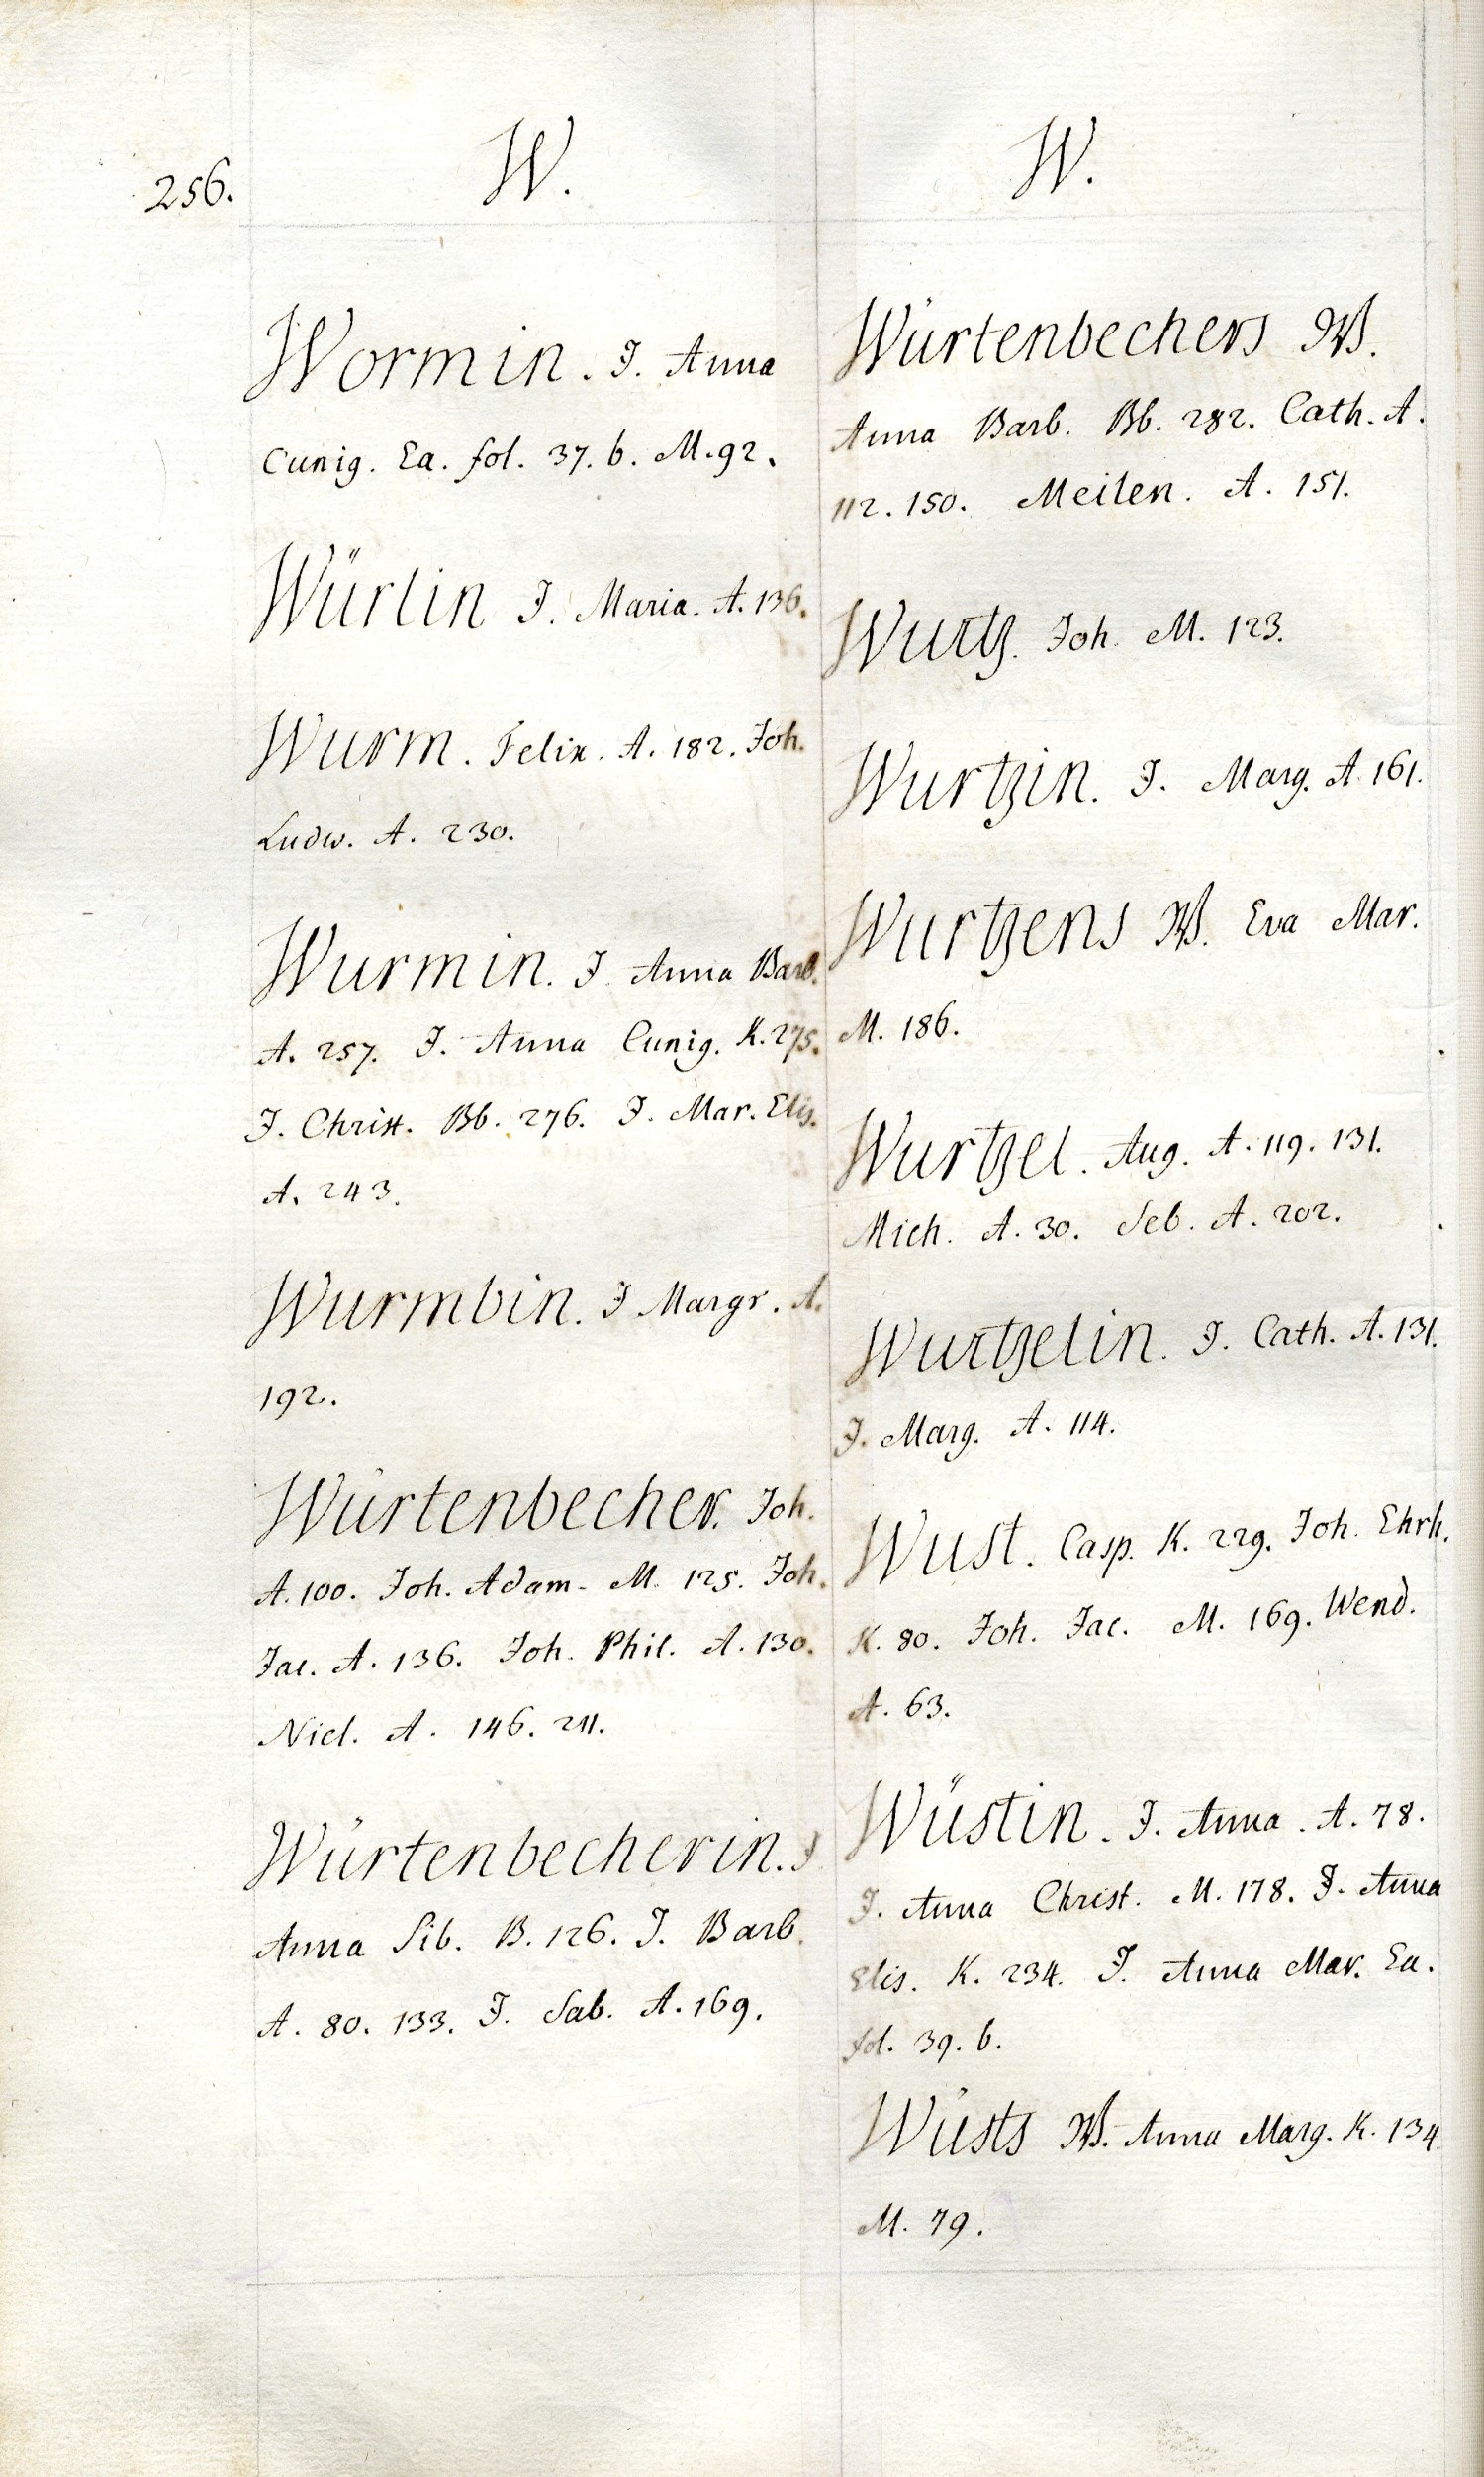 256.
W.
Wormin. J. Anna
Cunig. Ea. fol. 37. b. M. 92.
Würlin J. Maria. A. 136.
Wurm. Felix. A. 182. Joh.
Ludw. A. 230.
Wurmin. J. Anna Barb.
A. 257. J. Anna Cunig. K. 275.
J. Christ. Bb. 276. J. Mar. Elis.
A. 243.
Wurmbin. J Margr. A.
192.
Würtenbecher. Joh.
A. 100. Joh. Adam. M. 125. Joh.
Jac. A. 136. Joh. Phil. A. 130.
Nicl. A. 146. 211.
Würtenbecherin. J.
Anna Sib. B. 126. J. Barb.
A. 80. 133. J. Sab. A. 169.
W.
Würtenbechers W.
Anna Barb. Bb. 282. Cath. A.
112. 150. Meilen. A. 151.
Wurtz. Joh. M. 123.
Wurtzin. J. Marg. A. 161.
Wurtzens W. Eva Mar.
M. 186.
Wurtzel. Aug. A. 119. 131.
Mich. A. 30. Seb. A. 202.
Wurtzelin. J. Cath. A. 131.
J. Marg. A. 114.
Wust. Casp. K. 229. Joh. Ehrh.
K. 80. Joh. Jac. M. 169. Wend.
A. 63.
Wüstin. J. Anna. A. 78.
J. Anna Christ. M. 178. J. Anna
Elis. K. 234. J. Anna Mar. Ea.
fol. 39. b.
Wüsts W. Anna Marg. K. 134
M. 79.